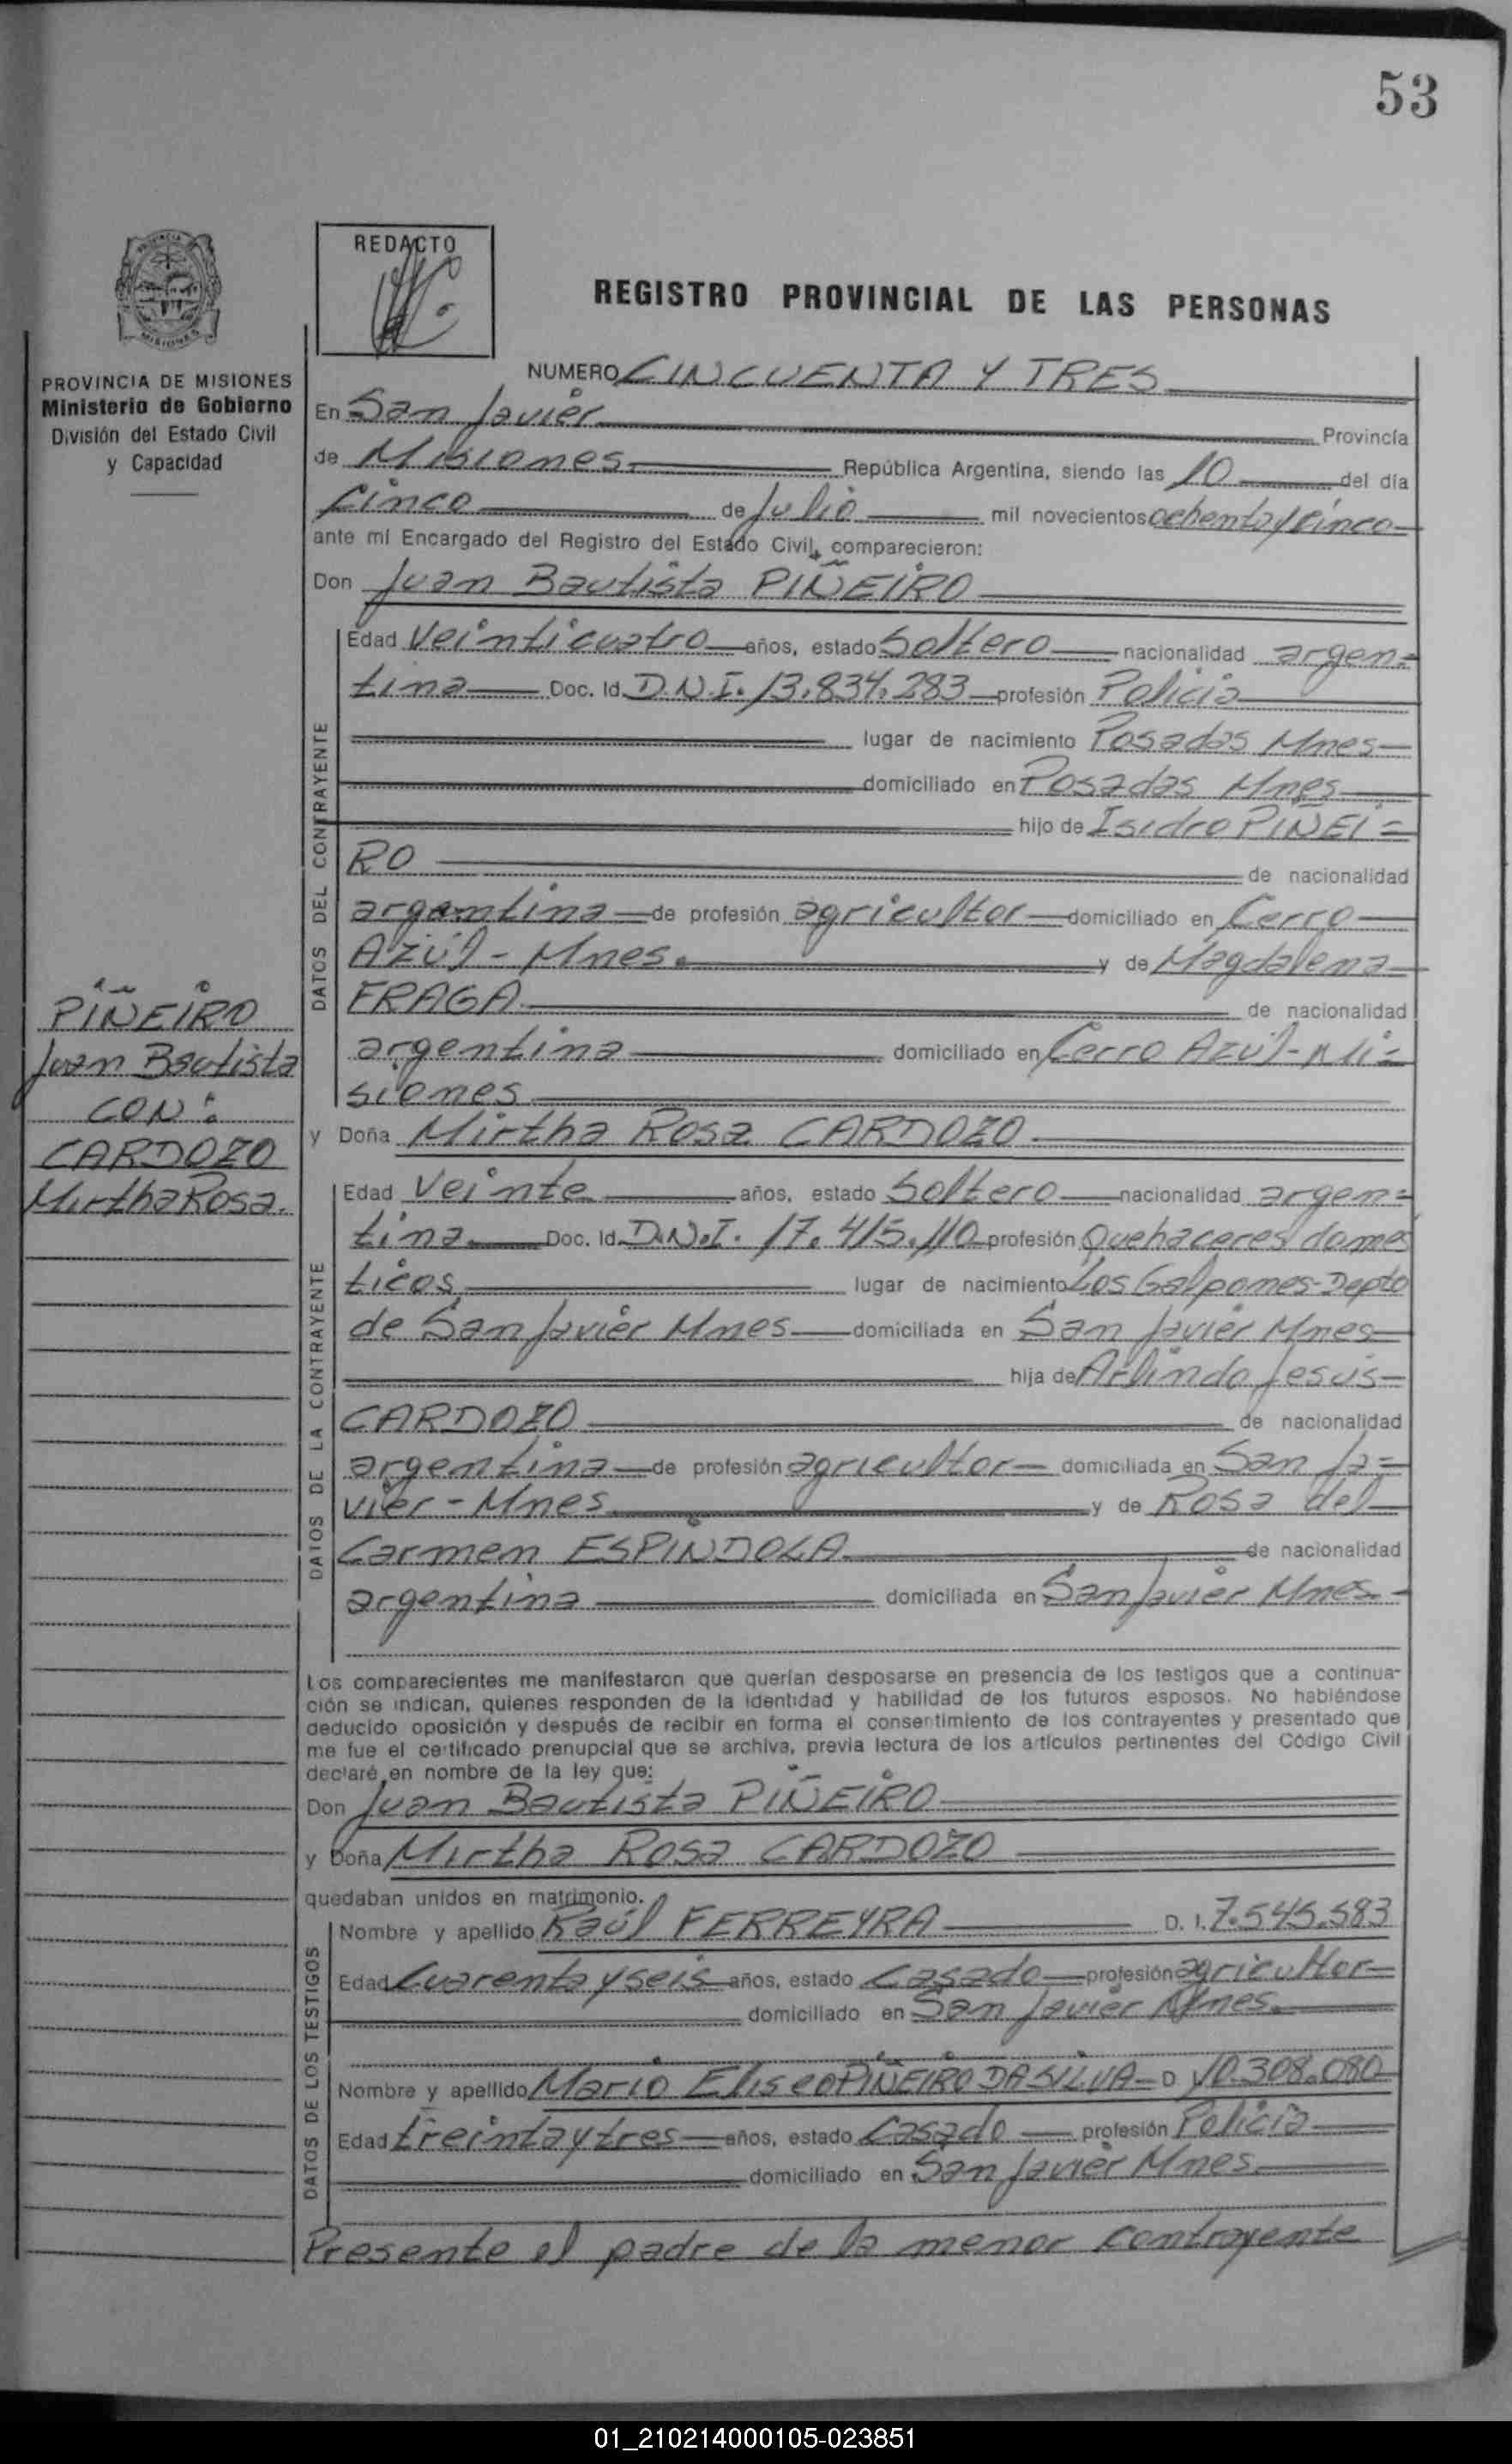 53
REDACTO
REGISTRO PROVINCIAL DE LAS PERSONAS
PROVINCIA DE MISIONES
Ministerio de Gobierno
División del Estado Civil
y Capacidad
NUMERO CINCUENTA Y TRES
En San Javier Provincia
de Misiones República Argentina, siendo las 10 del día
cinco de Julio mil novecientos ochenta y cinco
ante mí Encargado del Registro del Estado Civil, comparecieron:
Don Juan Bautista PIÑEIRO
DATOS DEL CONTRAYENTE
Edad Veinticuatro años, estado Soltero nacionalidad argen=
tina Doc. Id. D.N.I. 13.834.283 profesión Policia
lugar de nacimiento Posadas Mnes
domiciliado en Posadas Mnes
hijo de Isidro PIÑEI=
RO de nacionalidad
argantina de profesión agricultor domiciliado en Cerro
Azúl - Mnes. y de Magdalena
FRAGA de nacionalidad
argentina domiciliado en Cerro Azúl - Mi=
siones
PIÑEIRO
Juan Bautista
CON:
CARDOZO
Mirtha Rosa.
y Doña Mirtha Rosa CARDOZO
DATOS DE LA CONTRAYENTE
Edad Veinte años, estado Soltero nacionalidad argen=
tina Doc. Id. D.N.I. 17.415.110 profesión Quehaceres domes
ticos lugar de nacimiento Los Galpones-Depto
de San Javier Mnes domiciliada en San Javier Mnes
hija de Arlindo Jesús
CARDOZO de nacionalidad
argentina de profesión agricultor domiciliada en San Ja=
vier - Mnes y de Rosa del
Carmen ESPINDOLA de nacionalidad
argentina domiciliada en San Javier Mnes-
Los comparecientes me manifestaron que querían desposarse en presencia de los testigos que a continua-
ción se indican, quienes responden de la identidad y habilidad de los futuros esposos. No habiéndose
deducido oposición y después de recibir en forma el consentimiento de los contrayentes y presentado que
me fue el certificado prenupcial que se archiva, previa lectura de los artículos pertinentes del Código Civil
declaré en nombre de la ley que:
Don Juan Bautista PIÑEIRO
y Doña Mirtha Rosa CARDOZO
quedaban unidos en matrimonio.
DATOS DE LOS TESTIGOS
Nombre y apellido Raúl FERREYRA D. I. 7.545.583
Edad Cuarenta y seis años, estado Casado profesión agricultor
domiciliado en San Javier Mnes.
Nombre y apellido Mario Eliseo PIÑEIRO DA SILVA - D 10.308.080
Edad treinta y tres años, estado Casado profesión Policia
domiciliado en San Javier Mnes.
Presente el padre de la menor contrayente
01_210214000105-023851